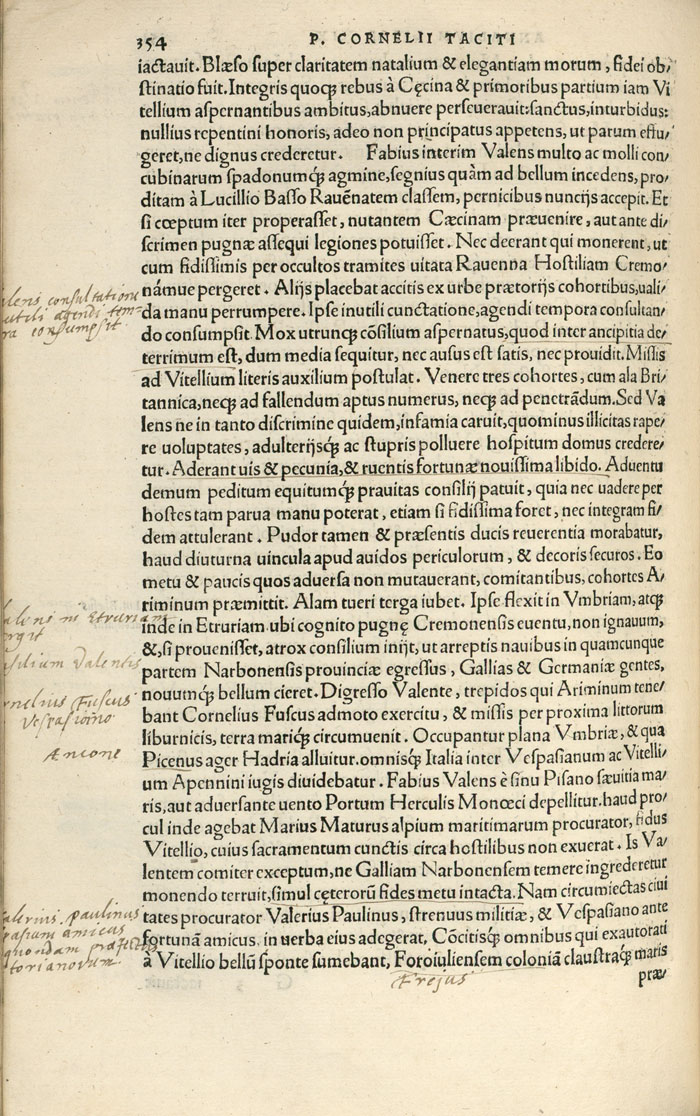 354 P. CORNELII TACITI
iactauit. Blæso super claritatem natalium & elegantiam morum, fidei ob/
stinatio fuit. Integris quoqꝫ rebus à Cęcina & primoribus partium iam Vi
tellium aspernantibus ambitus, abnuere perseuerauit: sanctus, inturbidus:
nullius repentini honoris, adeo non principatus appetens, ut parum effu/
geret, ne dignus crederetur. Fabius interim Valens multo ac molli con/
cubinarum spadonumqꝫ agmine, segnius quàm ad bellum incedens, pro/
ditam à Lucillio Basso Rauēnatem classem, pernicibus nuncijs accepit. Et
si cœptum iter properasset, nutantem Cæcinam præuenire, aut ante di/
scrimen pugnæ assequi legiones potuisset. Nec deerant qui monerent, ut
cum fidissimis per occultos tramites uitata Rauenna Hostiliam Cremo/
námue pergeret. Alijs placebat accitis ex urbe prætorijs cohortibus, uali/
da manu perrumpere. Ipse inutili cunctatione, agendi tempora consultan/
do consumpsit. Mox utrunqꝫ cōsilium aspernatus, quod inter ancipitia de/
terrimum est, dum media sequitur, nec ausus est satis, nec prouidit. Missis
ad Vitellium literis auxilium postulat. Venere tres cohortes, cum ala Bri/
tannica, neqꝫ ad fallendum aptus numerus, neqꝫ ad penetrādum. Sed Va
lens ne in tanto discrimine quidem, infamia caruit, quominus illicitas rape/
re uoluptates, adulterijsqꝫ ac stupris polluere hospitum domus credere/
tur. Aderant uis & pecunia, & ruentis fortunæ nouissima libido. Aduentu
demum peditum equitumqꝫ prauitas consilij patuit, quia nec uadere per
hostes tam parua manu poterat, etiam si fidissima foret, nec integram fi/
dem attulerant. Pudor tamen & præsentis ducis reuerentia morabatur,
haud diuturna uincula apud auidos periculorum, & decoris securos. Eo
metu & paucis quos aduersa non mutauerant, comitantibus, cohortes A/
riminum præmittit. Alam tueri terga iubet. Ipse flexit in Vmbriam, atqꝫ
inde in Etruriam ubi cognito pugnę Cremonensis euentu, non ignauum,
&, si prouenisset, atrox consilium inijt, ut arreptis nauibus in quamcunque
partem Narbonensis prouinciæ egressus, Gallias & Germaniæ gentes,
nouumqꝫ bellum cieret. Digresso Valente, trepidos qui Ariminum tene/
bant Cornelius Fuscus admoto exercitu, & missis per proxima littorum
liburnicis, terra mariqꝫ circumuenit. Occupantur plana Vmbriæ, & qua
Picenus ager Hadria alluitur. omnisqꝫ Italia inter Vespasianum ac Vitelli/
um Apennini iugis diuidebatur. Fabius Valens è sinu Pisano sæuitia ma/
ris, aut aduersante uento Portum Herculis Monœci depellitur. haud pro/
cul inde agebat Marius Maturus alpium maritimarum procurator, fidus
Vitellio, cuius sacramentum cunctis circa hostilibus non exuerat. Is Va/
lentem comiter exceptum, ne Galliam Narbonensem temere ingrederetur
monendo terruit, simul cęterorū fides metu intacta. Nam circumiectas ciui
tates procurator Valerius Paulinus, strenuus militiæ, & Vespasiano ante
fortunā amicus, in uerba eius adegerat, Cōcitisqꝫ omnibus qui exautorati
à Vitellio bellū sponte sumebant, Foroiuliensem coloniā claustraqꝫ maris
præ/
Frejus
consultatione
agendi
consumpsit
in Etruriam
Valentis
Fuscus
Vespasiano
Ancone
paulinus
amicus
quondam